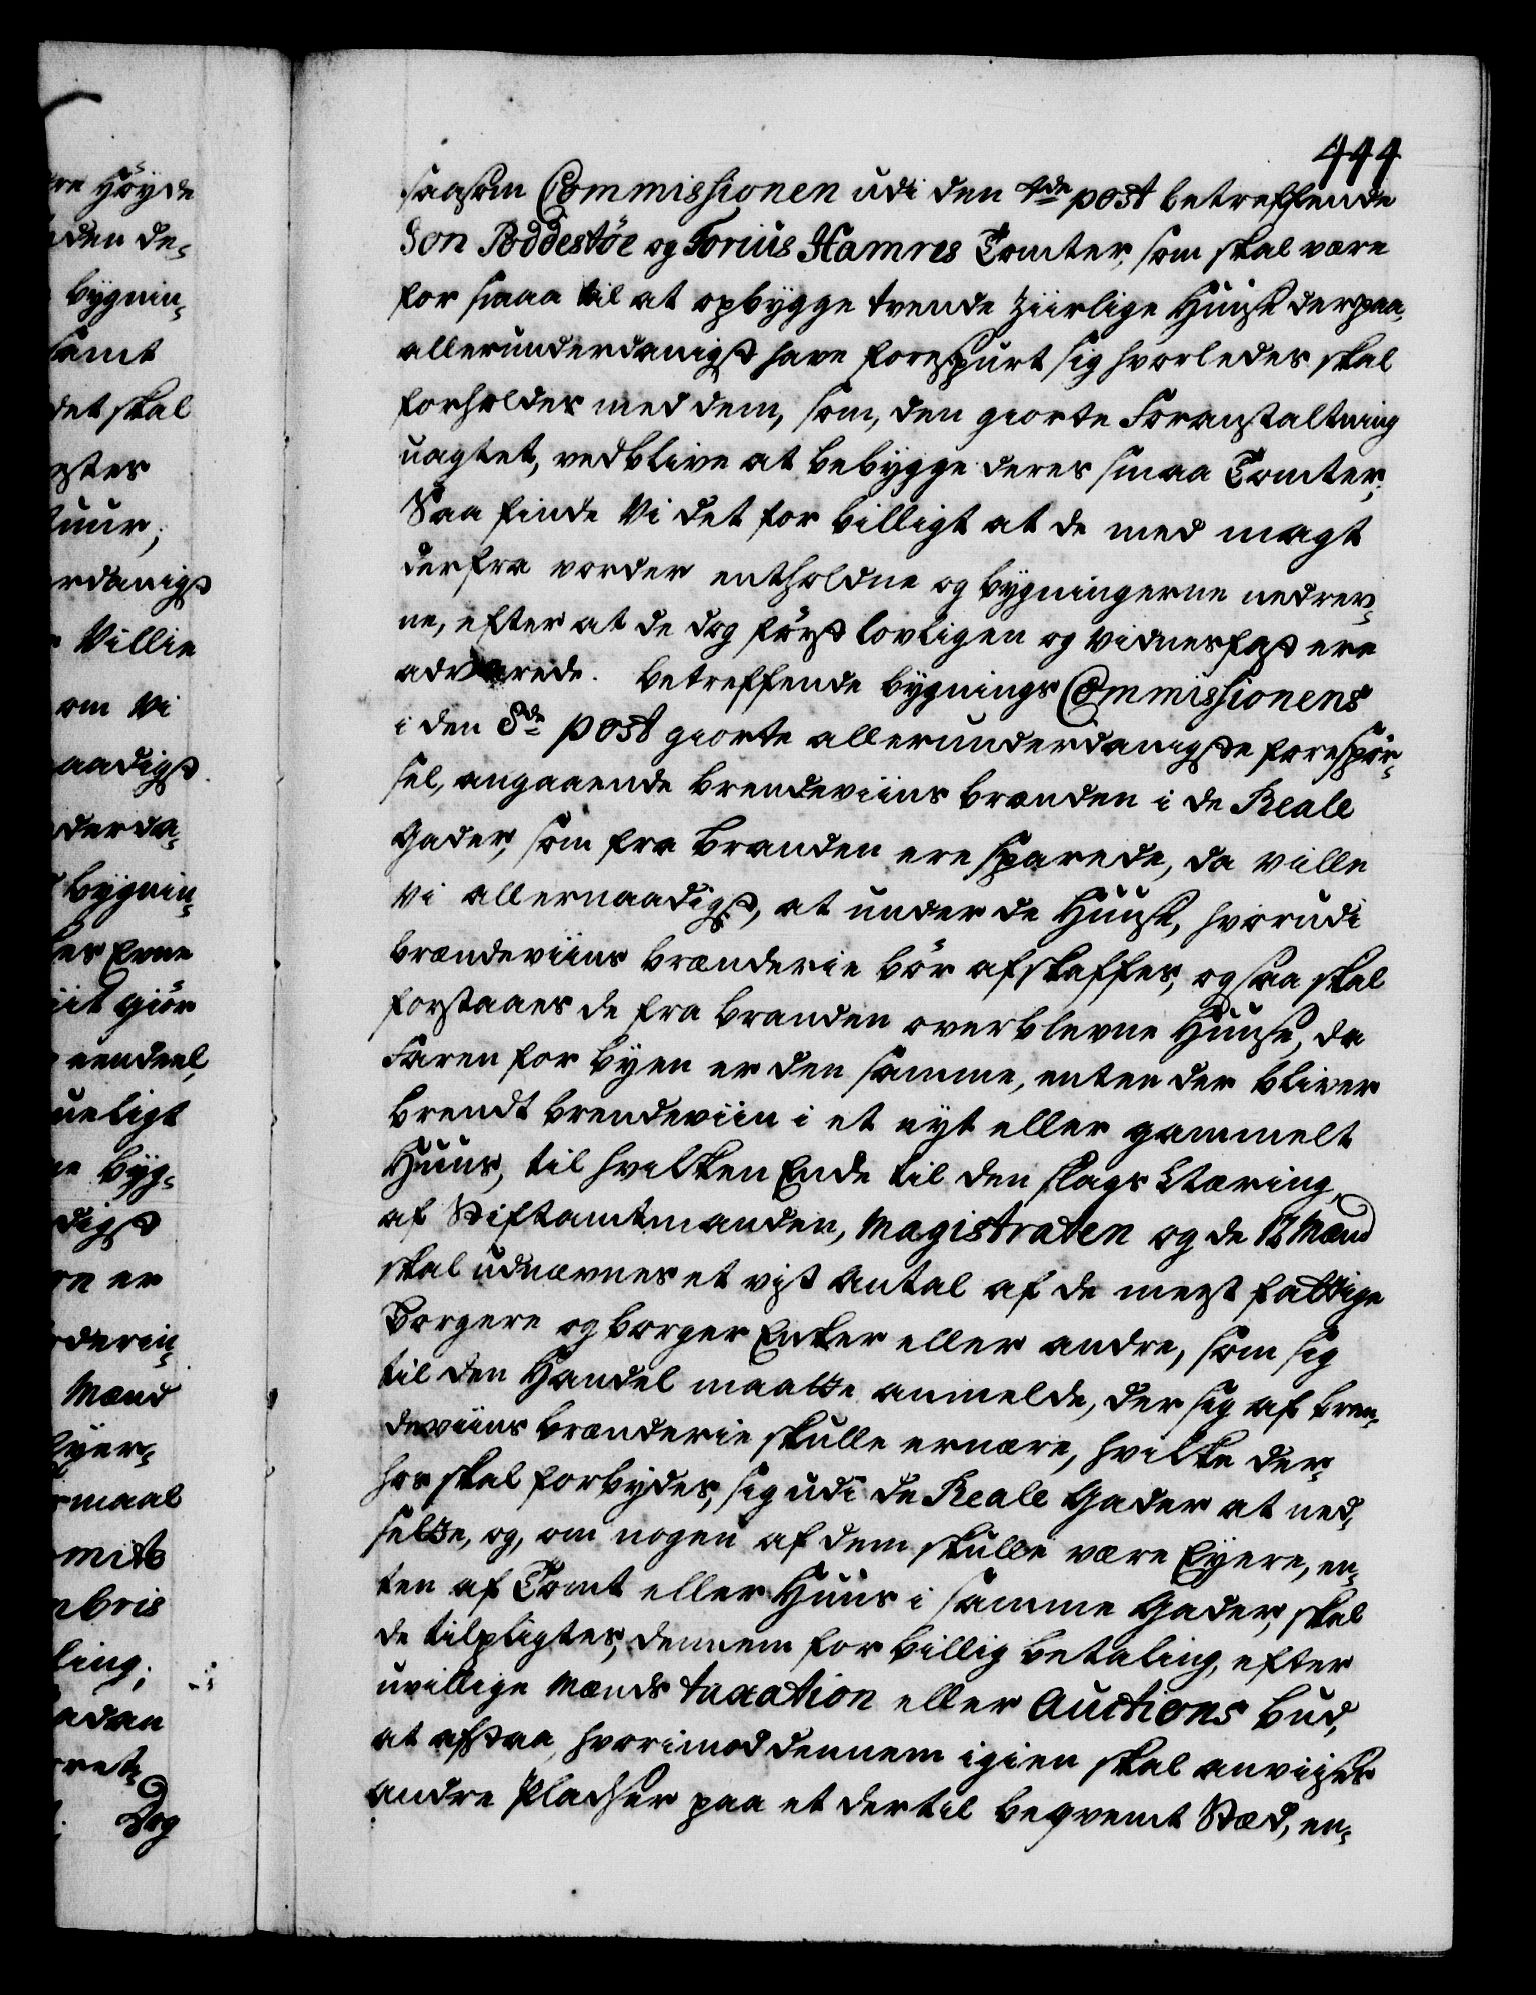 444
saasom Commissionen udi den 4de post betreffende
Son Boddestör og Torius Hamres Tomter, som skal være
for smaa til at opbygge trende ziirlige Huuse derpaa,
allerunderdanigst have forespurt sig hvorledes skal
forholdes med dem, som, den giorte Foranstaltning
uagtet, vedblive at bebygge deres smaa Tomter;
Saa finde Vi det for billigt at de med magt
derfra vorder entholdne og bygningerne nedrev-
ne, efter at de dog først lovligen og vidnesfast ere
advarede. Betreffende bygnings Commissionens
i den 8de post giorte allerunderdanigste forespör-
sel, angaaende brendeviins brænden i de Reale
Gader, som fra branden ere sparede, da ville
Vi allernaadigst, at under de Huuse, hvorudi
brændeviins brænderie bör afskaffes, ogsaa skal
forstaaes de fra branden overblevne Huuse, da
Faren for byen er den samme, enten der bliver
brendt brendeviin i et nyt eller gammelt
Huus, til hvilken Ende til den slags Næring,
af Stiftamtmanden, Magistraten og de 12 Mænd
skal udnævnes et vist Antal af de meest fattige
Borgere og borger Enker eller andre, som sig
til den Handel maatte anmelde, der sig af bren-
deviins brænderie skulle ernære, hvilke der-
hos skal forbydes, sig udi de Reale Gader at ned-
sette, og, om nogen af dem skulle være Eyere, en-
ten af Tomt eller Huus i samme Gader, skal
de tilpligtes, dennem for billig betaling, efter
uvillige Mænds taxation eller Auctions bud,
at afstaa, hvorimod dennem igien skal anviises
andre Pladser paa et dertil beqvemt Stæd, en-
re Höyde
den de-
bygnin-
samt
det skal
ester
uur;
rdanigst
Villie
om Vi
aadigst.
derda-
bygnin-
er Evne
iit giör
eendeel,
ueligt
ne byg-
digst
re er
derin-
Mænd
yer-
maal
mits
bris
ling;
adan
rest-
Dog